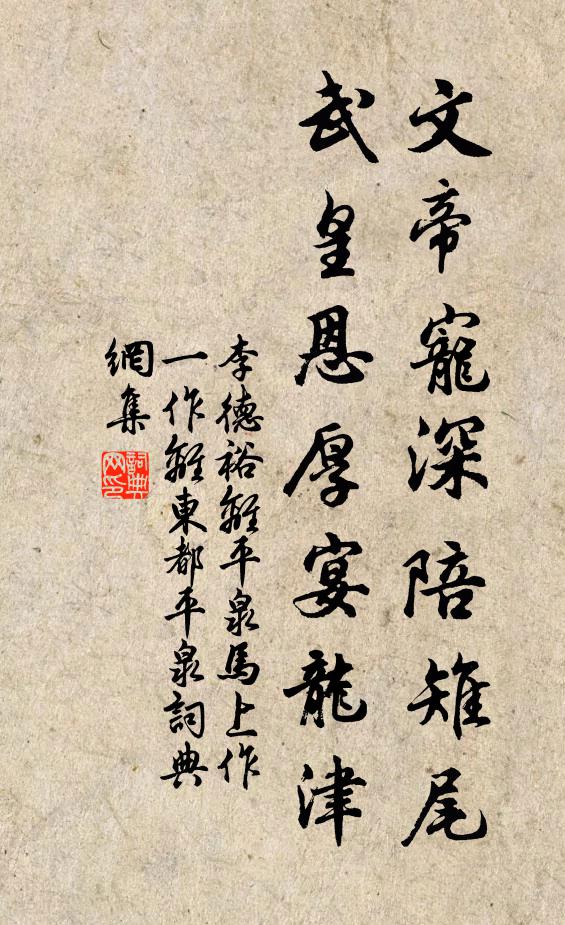 文帝寵深陪雉尾
武皇恩厚宴龍津
李德裕離平泉馬上作
一作離東都平泉詞典
網集
詞典
网印